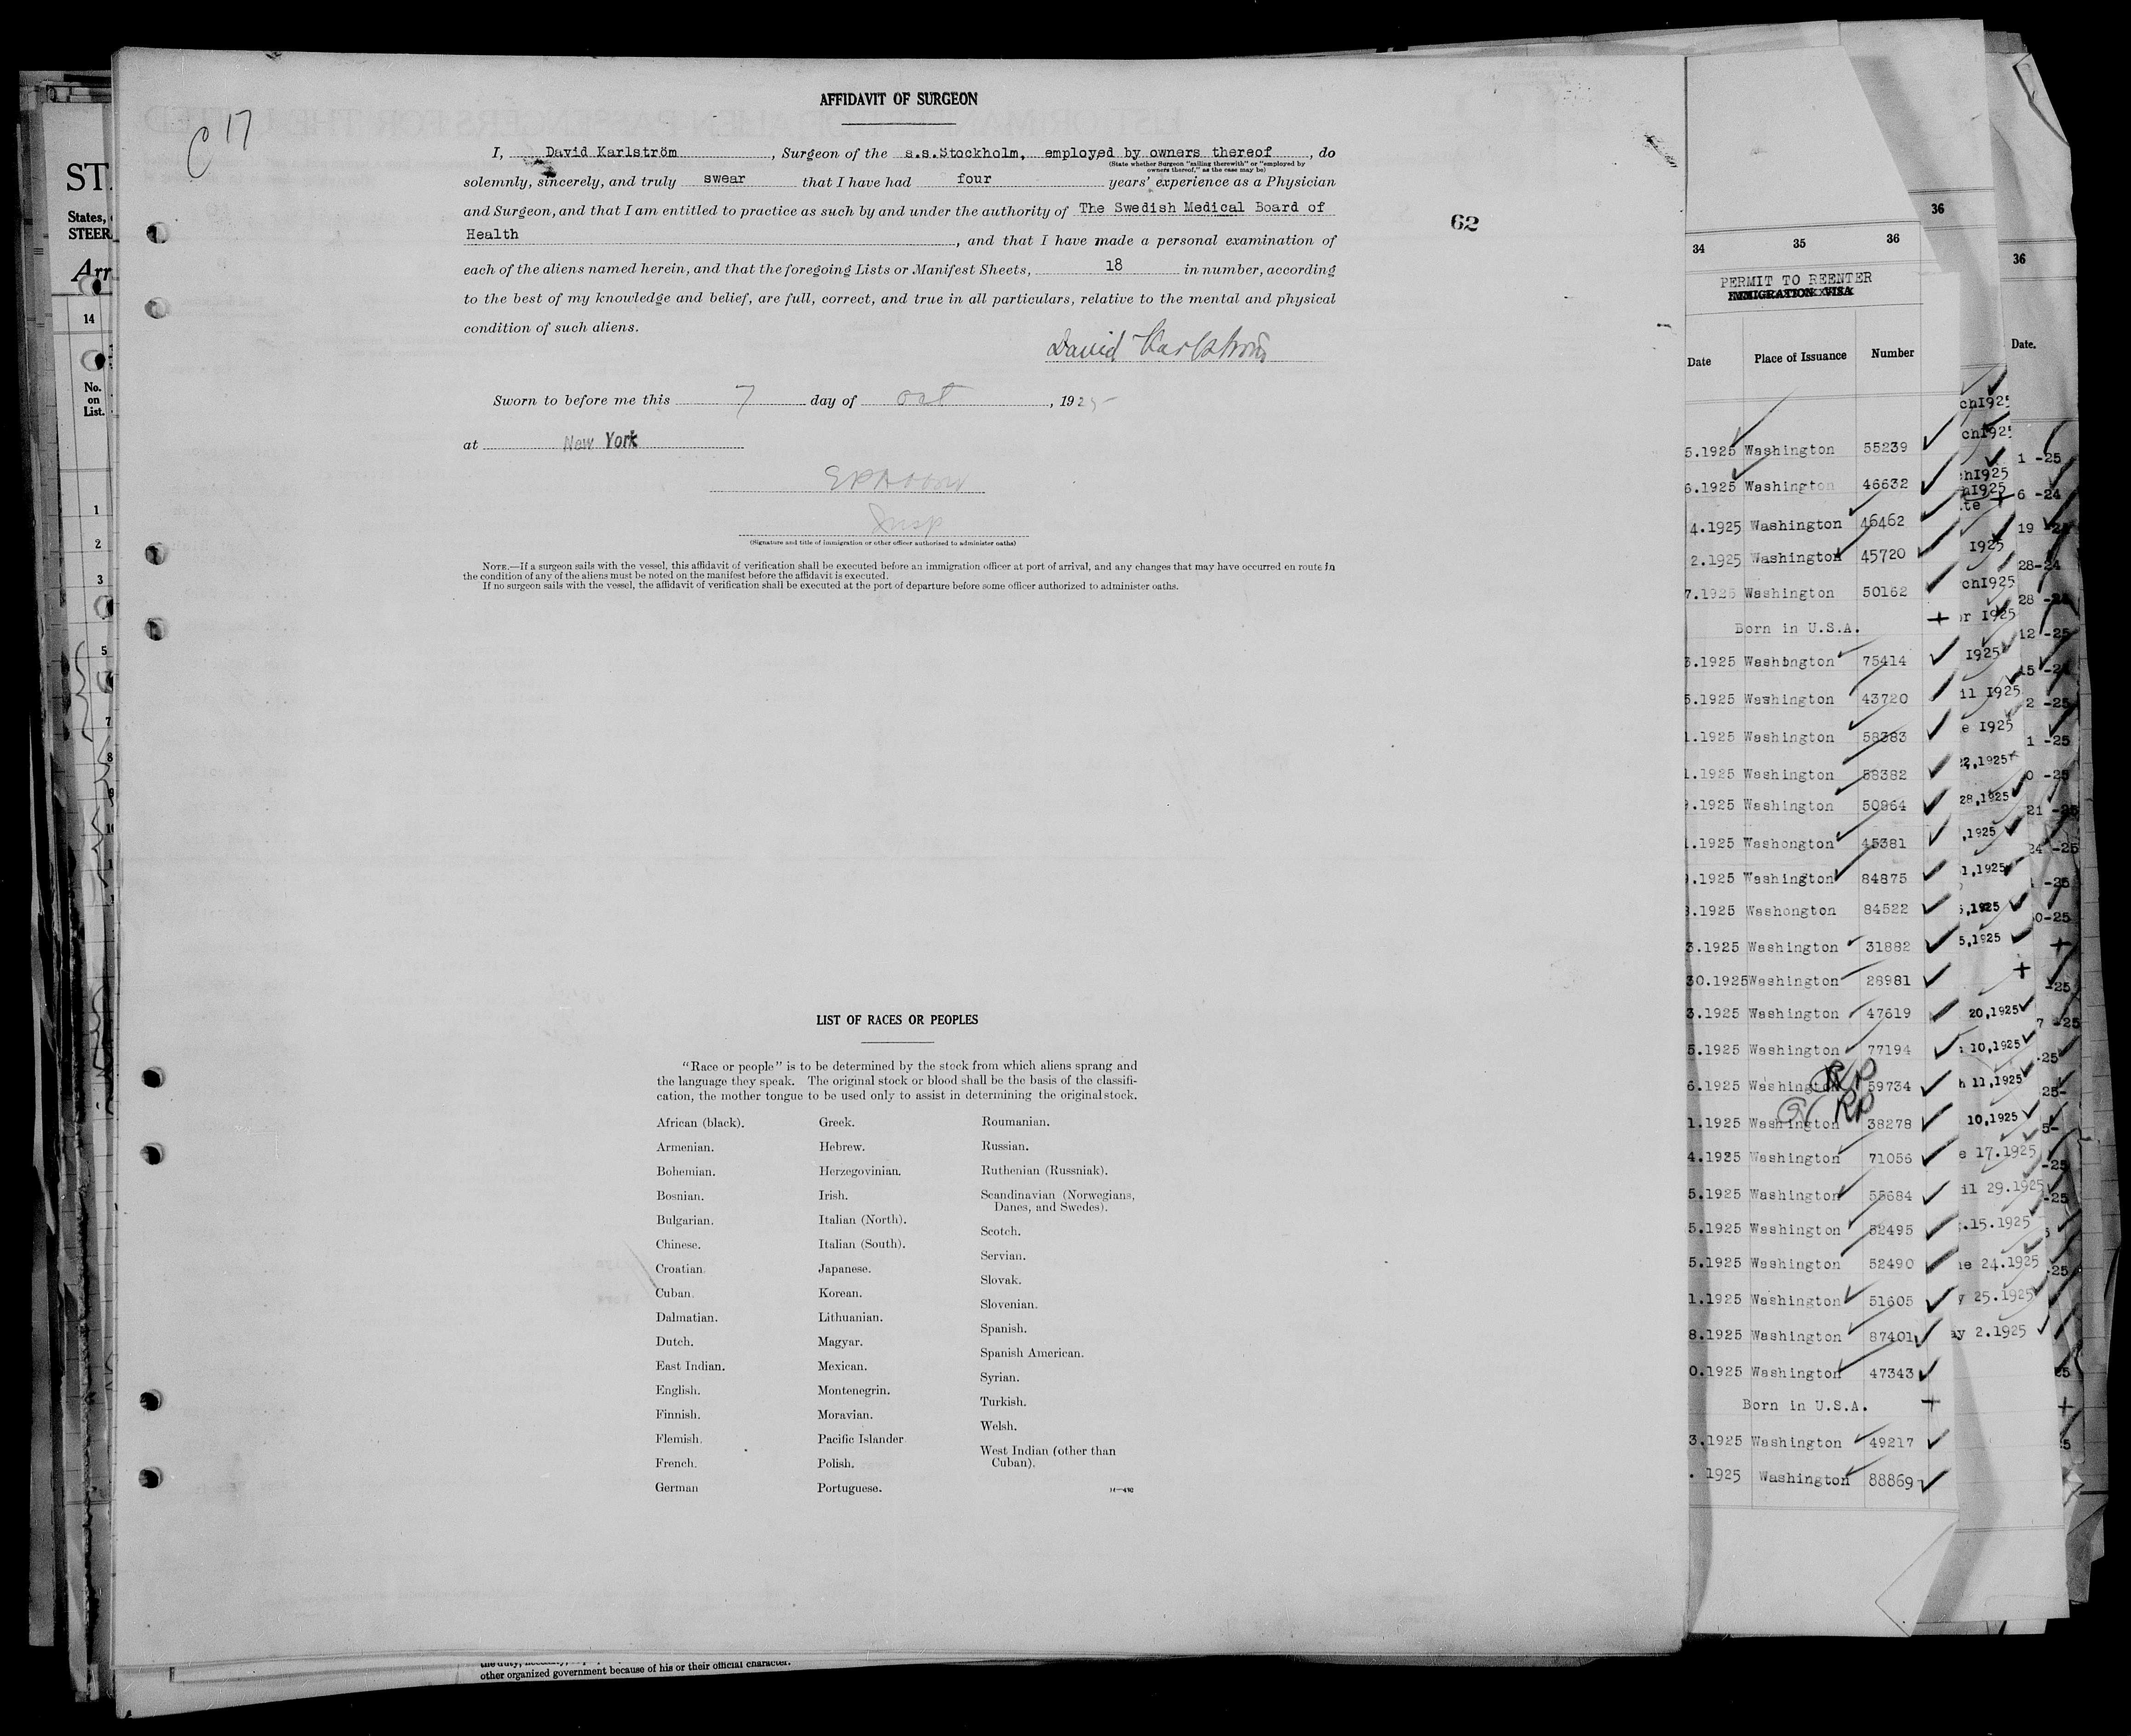 C 17
AFFIDAVIT OF SURGEON
I, David Karlström, Surgeon of the s.s.Stockholm, employed by owners thereof, do
(State whether Surgeon "sailing therewith" or "employed by
owners thereof," as the case may be)
solemnly, sincerely, and truly swear that I have had four years' experience as a Physician
and Surgeon, and that I am entitled to practice as such by and under the authority of The Swedish Medical Board of
Health, and that I have made a personal examination of
each of the aliens named herein, and that the foregoing Lists or Manifest Sheets, 18 in number, according
to the best of my knowledge and belief, are full, correct, and true in all particulars, relative to the mental and physical
condition of such aliens.
David Karlström
Sworn to before me this 7 day of Oct, 1925
at New York
Insp
(Signature and title of immigration or other officer authorized to administer oaths)
NOTE.—If a surgeon sails with the vessel, this affidavit of verification shall be executed before an immigration officer at port of arrival, and any changes that may have occurred en route in
the condition of any of the aliens must be noted on the manifest before the affidavit is executed.
If no surgeon sails with the vessel, the affidavit of verification shall be executed at the port of departure before some officer authorized to administer oaths.
62
LIST OF RACES OR PEOPLES
"Race or people" is to be determined by the stock from which aliens sprang and
the language they speak. The original stock or blood shall be the basis of the classifi-
cation, the mother tongue to be used only to assist in determining the original stock.
African (black).
Armenian.
Bohemian.
Bosnian.
Bulgarian.
Chinese.
Croatian.
Cuban.
Dalmatian.
Dutch.
East Indian.
English.
Finnish.
Flemish.
French.
German
Greek.
Hebrew.
Herzegovinian.
Irish.
Italian (North).
Italian (South).
Japanese.
Korean.
Lithuanian.
Magyar.
Mexican.
Montenegrin.
Moravian.
Pacific Islander
Polish.
Portuguese.
Roumanian.
Russian.
Ruthenian (Russniak).
Scandinavian (Norwegians,
Danes, and Swedes).
Scotch.
Servian.
Slovak.
Slovenian.
Spanish.
Spanish American.
Syrian.
Turkish.
Welsh.
West Indian (other than
Cuban).
other organized government because of his or their official character.
ST
States,
STEER
Arr
14
No.
on
List.
1
2
3
5
7
8
9
34 35 36
PERMIT TO REENTER
IMMIGRATION VISA
Date Place of Issuance Number
5.1925 Washington 55239
6.1925 Washington 46632
4.1925 Washington 46462
2.1925 Washington 45720
7.1925 Washington 50162
Born in U.S.A.
3.1925 Washbngton 75414
5.1925 Washington 43720
1.1925 Washington 58383
1.1925 Washington 58382
9.1925 Washington 50964
1.1925 Washongton 45381
9.1925 Washington 84875
3.1925 Washongton 84522
3.1925 Washington 31882
30.1925 Washington 28981
3.1925 Washington 47619
5.1925 Washington 77194
6.1925 Washington 59734
1.1925 Washington 38278
4.1925 Washington 71056
5.1925 Washington 55684
5.1925 Washington 52495
5.1925 Washington 52490
1.1925 Washington 51605
8.1925 Washington 87401
0.1925 Washington 47343
Born in U.S.A.
3.1925 Washington 49217
. 1925 Washington 88869
36
ch1925
ch1925
1925
ch1925
r 1925
1925
il 1925
e 1925
22,1925
28,1925
,1925
1,1925
5,1925
5,1925
20,1925
10,1925
h 11,1925
10,1925
e 17.1925
il 29.1925
.15.1925
ne 24.1925
y 25.1925
ay 2.1925
36
Date.
1 -25
6 -24
19 -25
28-24
28 -24
12 -25
15 -24
2 -25
1 -25
0 -25
21 -25
24 -25